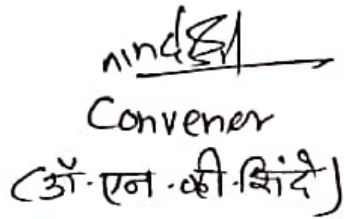 Convener
(डॉ.एन.व्ही.शिंदे)